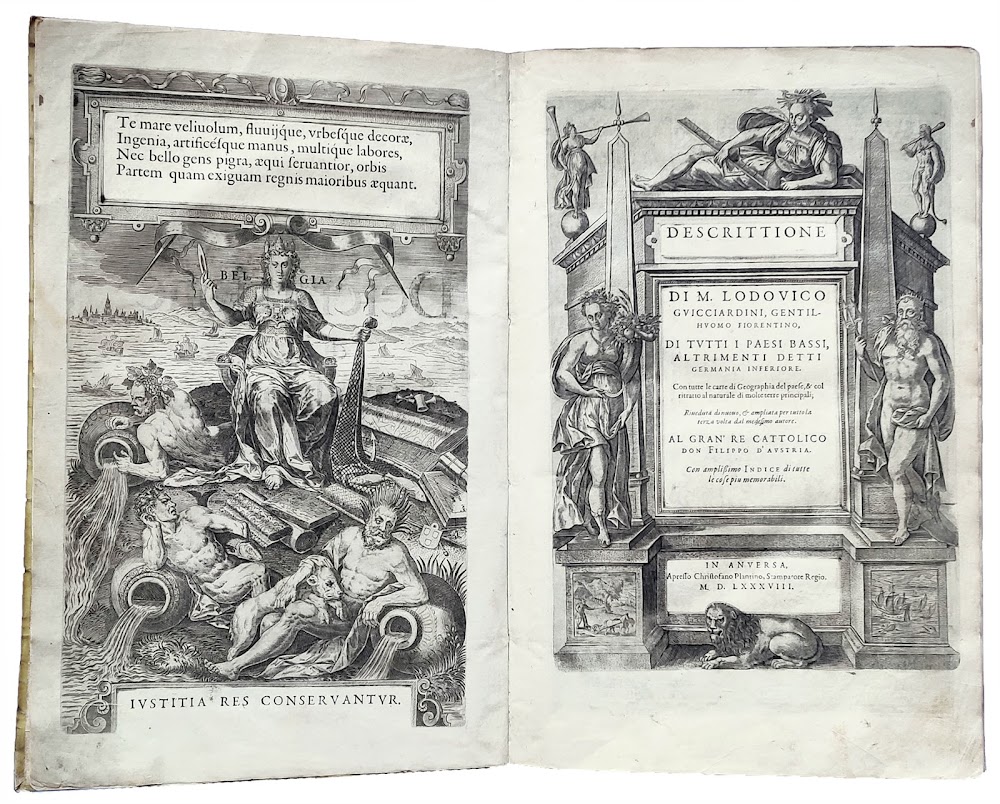 Te mare veliuolum, fluuijq́ue, vrbesq́ue decoræ,
Ingenia, artificésque manus, multique labores,
Nec bello gens pigra, æqui seruantior, orbis
Partem quam exiguam regnis maioribus æquant.
BEL GIA
IVSTITIA RES CONSERVANTVR.
DESCRITTIONE
DI M. LODOVICO
GVICCIARDINI, GENTIL-
HVOMO FIORENTINO,
DI TVTTI I PAESI BASSI,
ALTRIMENTI DETTI
GERMANIA INFERIORE.
Con tutte le carte di Geographia del paese, & col
ritratto al naturale di molte terre principali;
Riueduta di nuouo, & ampliata per tutto la
terza volta dal medesimo autore.
AL GRAN' RE CATTOLICO
DON FILIPPO D'AVSTRIA.
Con amplissimo INDICE di tutte
le cose piu memorabili.
IN ANVERSA,
Apresso Christofano Plantino, Stampatore Regio.
M. D. LXXXVIII.